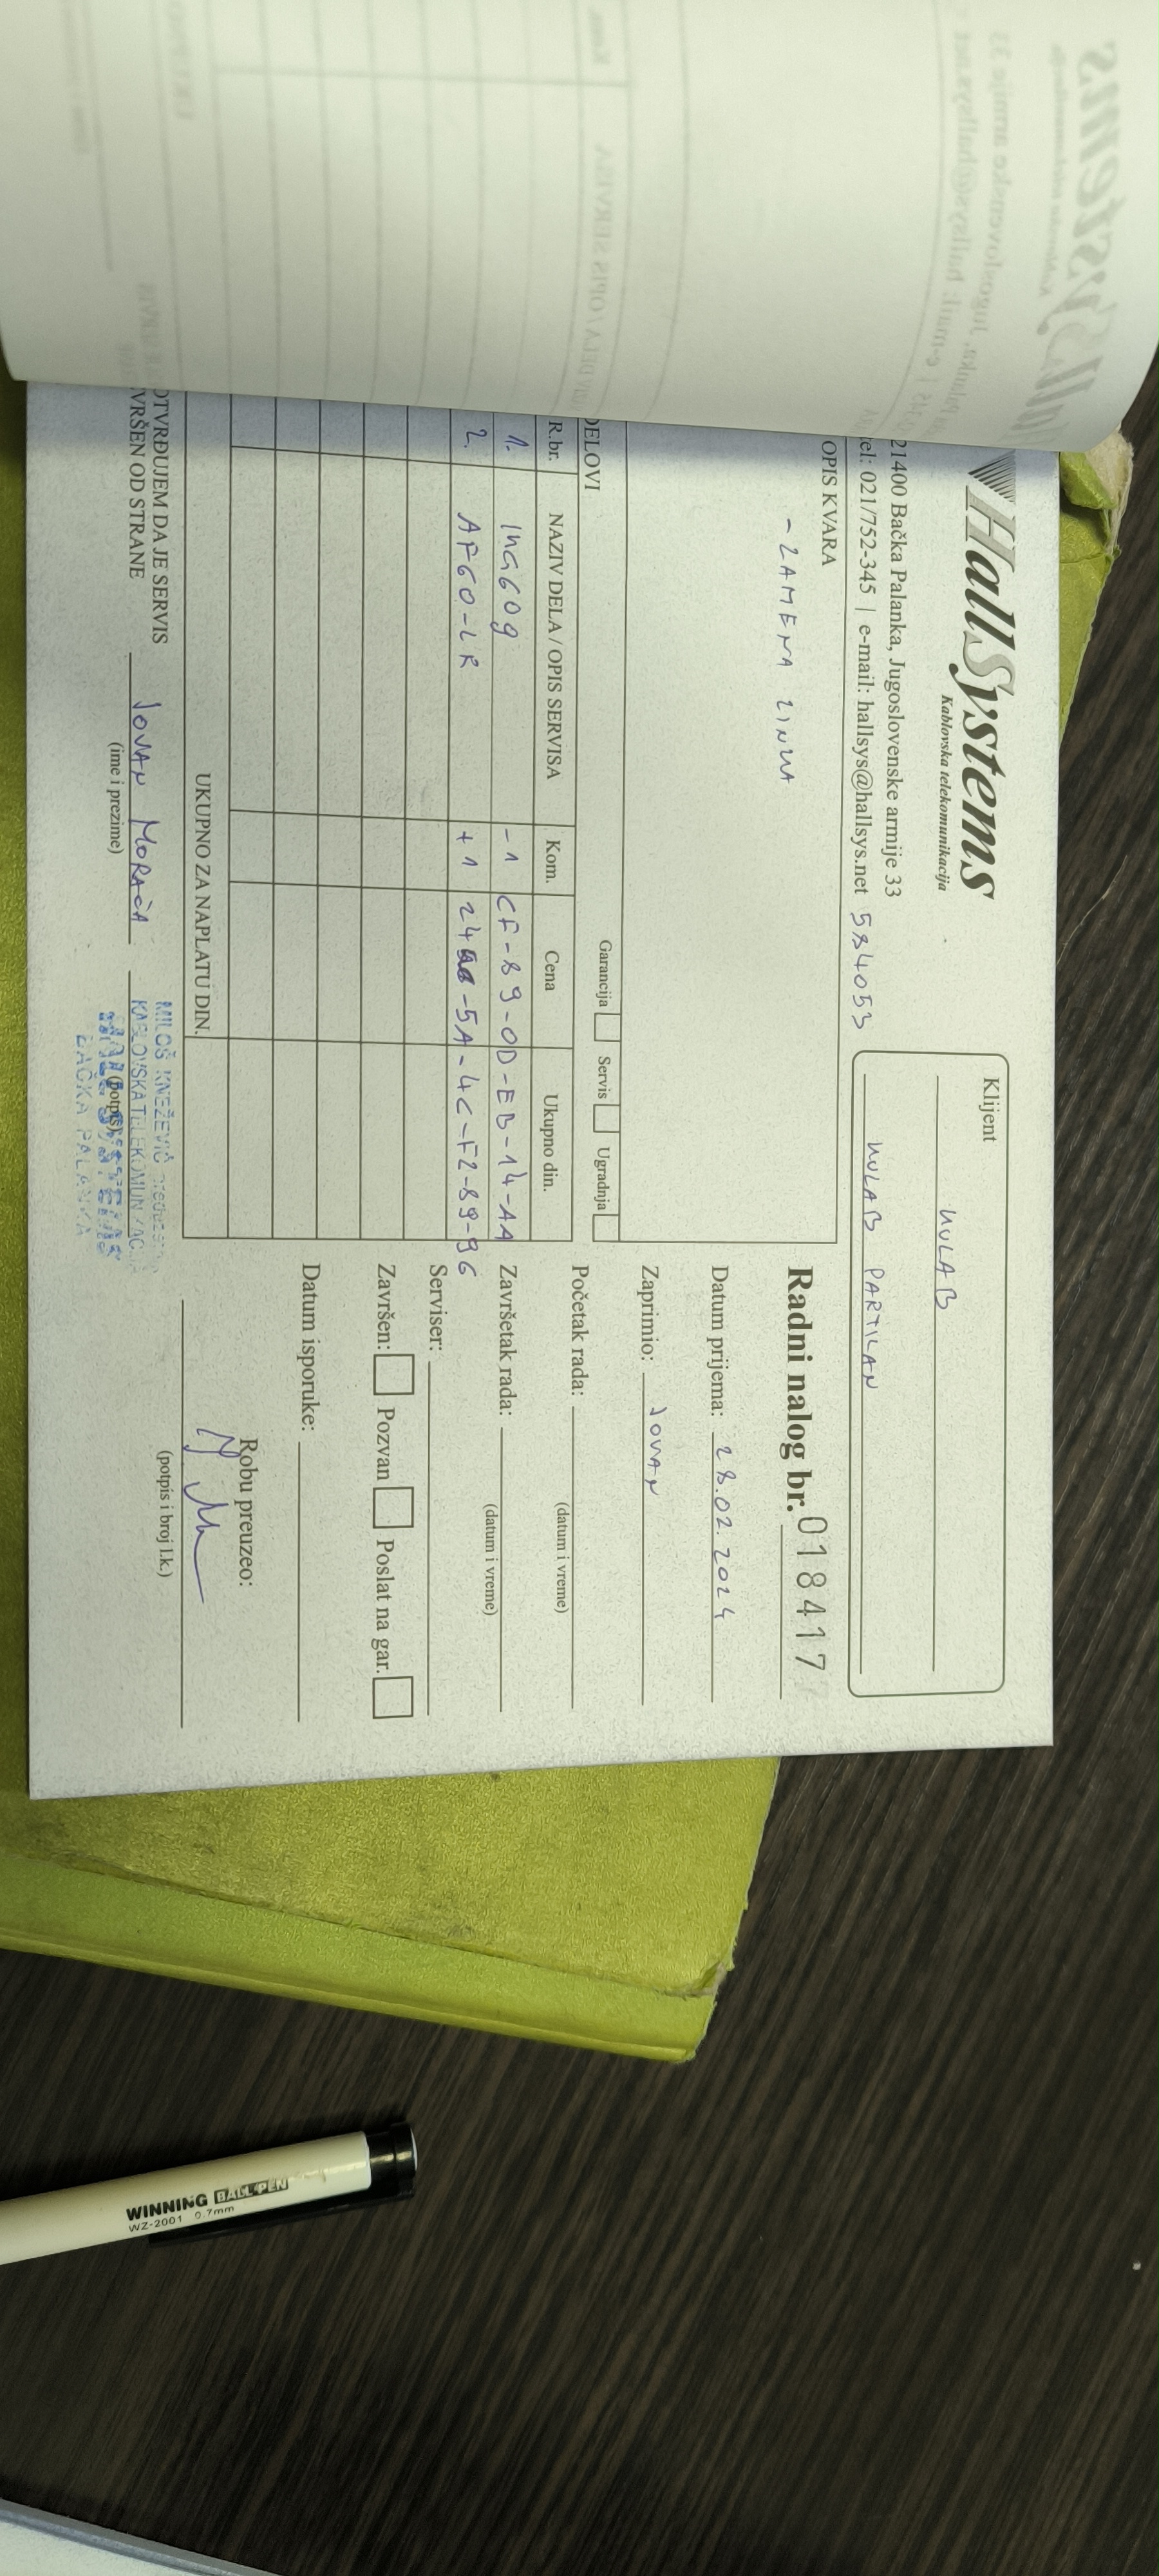 HallSystems
Kablovska telekomunikacija
21400 Bačka Palanka, Jugoslovenske armije 33
el: 021/752-345 | e-mail: hallsys@hallsys.net 584053
Klijent
KULAB
KULAB PARTIZAN
OPIS KVARA
- ZAMENA LINKA
Garancija Servis Ugradnja
Radni nalog br. 018417
Datum prijema: 28.02.2024
Zaprimio: JOVAN
Početak rada:
(datum i vreme)
Završetak rada:
(datum i vreme)
Serviser:
Završen: Pozvan Poslat na gar.
Datum isporuke:
Robu preuzeo:
(potpis i broj l.k.)
DELOVI
R.br. NAZIV DELA / OPIS SERVISA Kom. Cena Ukupno din.
1. LHG60g -1 CF-89-0D-EB-14-AA
2. AF60-LR +1 24-5A-4C-F2-89-96
UKUPNO ZA NAPLATU DIN.
OTVRĐUJEM DA JE SERVIS
VRŠEN OD STRANE
JOVAN MORAČA
(ime i prezime)
(potpis)
MILOŠ KNEŽEVIĆ
KABLOVSKA TELEKOMUNIKACIJA
HALL SYSTEMS
BAČKA PALANKA
WINNING BALL PEN
WZ-2001 0.7mm